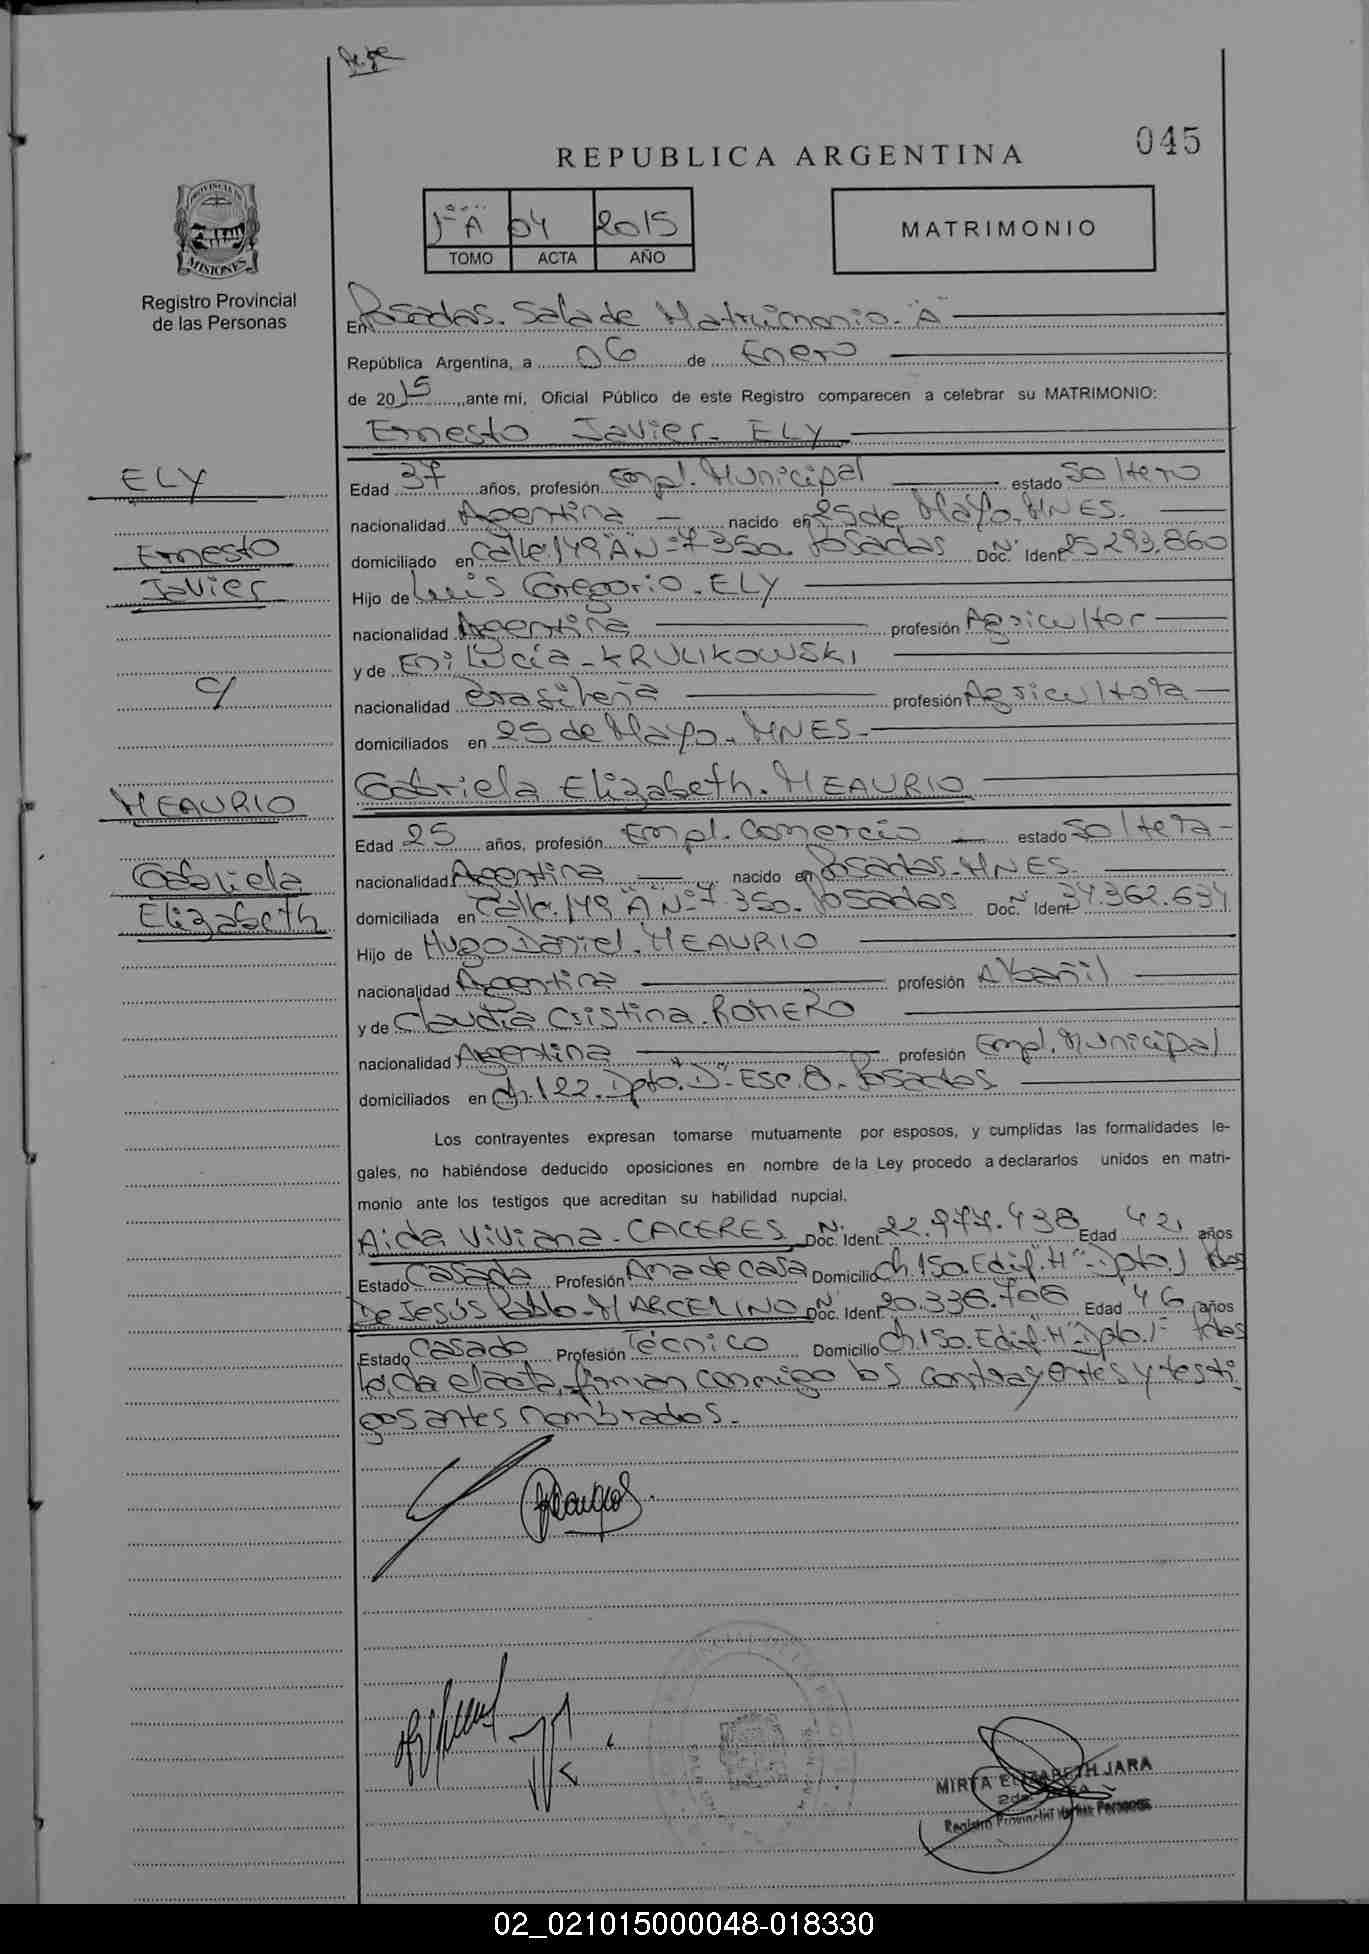 045
REPUBLICA ARGENTINA
PROVINCIA DE
MISIONES
Registro Provincial
de las Personas
1º A 04 2015
TOMO ACTA AÑO
MATRIMONIO
En Posadas. Sala de Matrimonio. "A"
República Argentina, a 06 de Enero
de 2015, ante mi, Oficial Público de este Registro comparecen a celebrar su MATRIMONIO:
Ernesto Javier. ELY
ELY
Ernesto
Javier
c/
MEAURIO
Gabriela
Elizabeth
Edad 37 años, profesión Empl. Municipal estado Soltero
nacionalidad Argentina nacido en 25 de Mayo. MNES.
domiciliado en Calle. 149 "A" Nº 7350. Posadas Doc. Nº Ident. 25.293.860
Hijo de Luis Gregorio. ELY
nacionalidad Argentina profesión Agricultor
y de Eni Lucía - KRULIKOWSKI
nacionalidad Brasileña profesión Agricultora
domiciliados en 25 de Mayo. MNES.
Gabriela Elizabeth. MEAURIO
Edad 25 años, profesión Empl. Comercio estado Soltera
nacionalidad Argentina nacido en Posadas. MNES.
domiciliada en Calle. 149 "A" Nº 7.350. Posadas Doc. Nº Ident. 34.362.634
Hijo de Hugo Daniel. MEAURIO
nacionalidad Argentina profesión Albañil
y de Claudia Cristina. ROMERO
nacionalidad Argentina profesión Empl. Municipal
domiciliados en Ch. 122. Dpto. "D". Esc. 8. Posadas
Los contrayentes expresan tomarse mutuamente por esposos, y cumplidas las formalidades le-
gales, no habiéndose deducido oposiciones en nombre de la Ley procedo a declararlos unidos en matri-
monio ante los testigos que acreditan su habilidad nupcial.
Aida Viviana. CACERES Doc. Nº Ident. 22.977.438 Edad 42, años
Estado Casada Profesión Ama de casa Domicilio Ch. 150. Edif. "H" Dpto. 1 Pdas
De Jesús Pablo. MARCELINO Doc. Nº Ident. 20.336.706 Edad 46 años
Estado Casado Profesión Técnico Domicilio Ch. 150. Edif. "H" Dpto. 1 Pdas
Leída el acta, firman conmigo los contrayentes y testi
gos antes nombrados.
MIRTA ELIZABETH JARA
Registro Provincial de las Personas
02_021015000048-018330